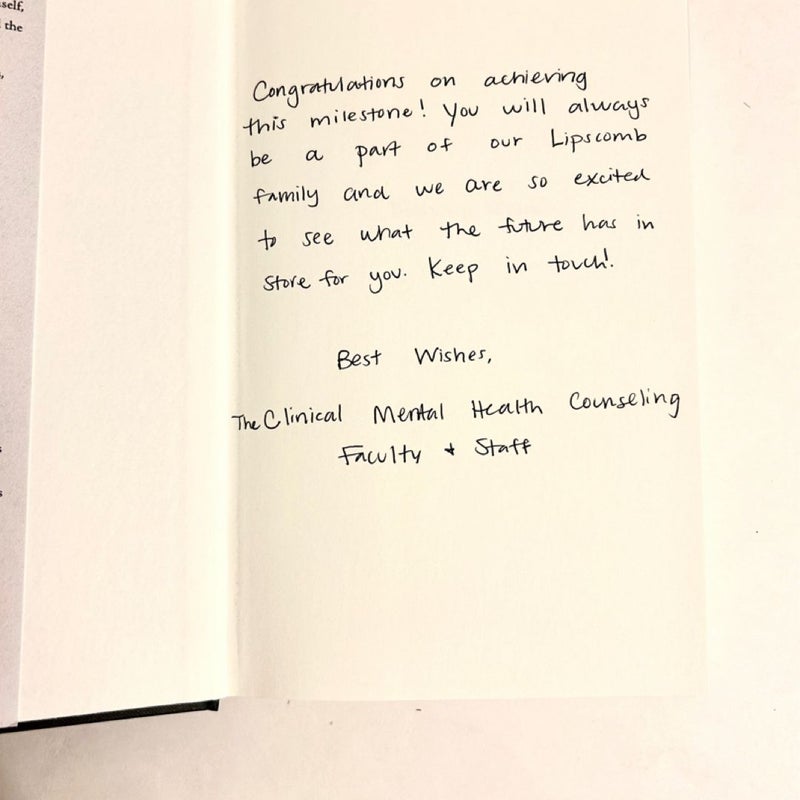 self,
the
Congratulations on achieving
this milestone! You will always
be a part of our Lipscomb
family and we are so excited
to see what the future has in
store for you. Keep in touch!
Best Wishes,
The Clinical Mental Health Counseling
Faculty + Staff